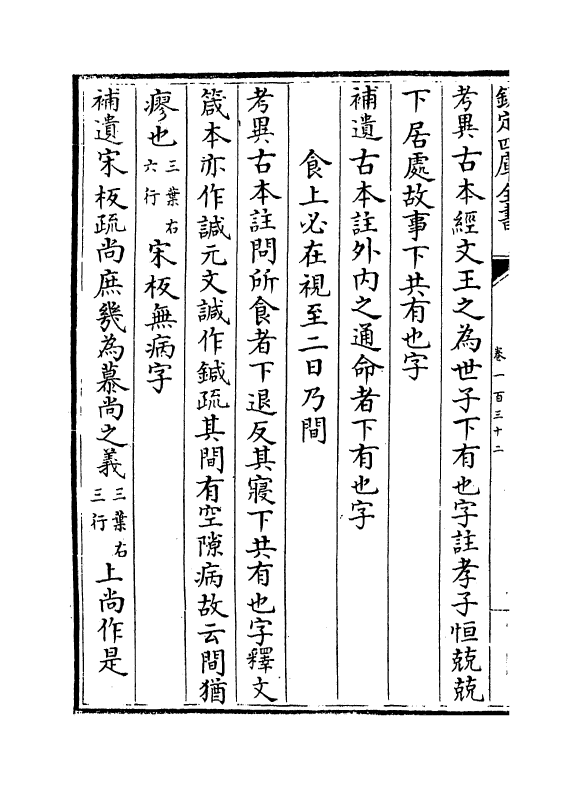 欽定四庫全書
卷一百三十二
考異古本經文王之為世子下有也字註孝子恒兢兢
下居處故事下共有也字
補遺古本註外内之通命者下有也字
食上必在視至二日乃間
考異古本註問所食者下退反其寢下共有也字釋文
箴本亦作諴元文諴作鍼疏其間有空隙病故云間猶
瘳也三葉右六行宋板無病字
補遺宋板疏尚庶幾為慕尚之義三葉右三行上尚作是